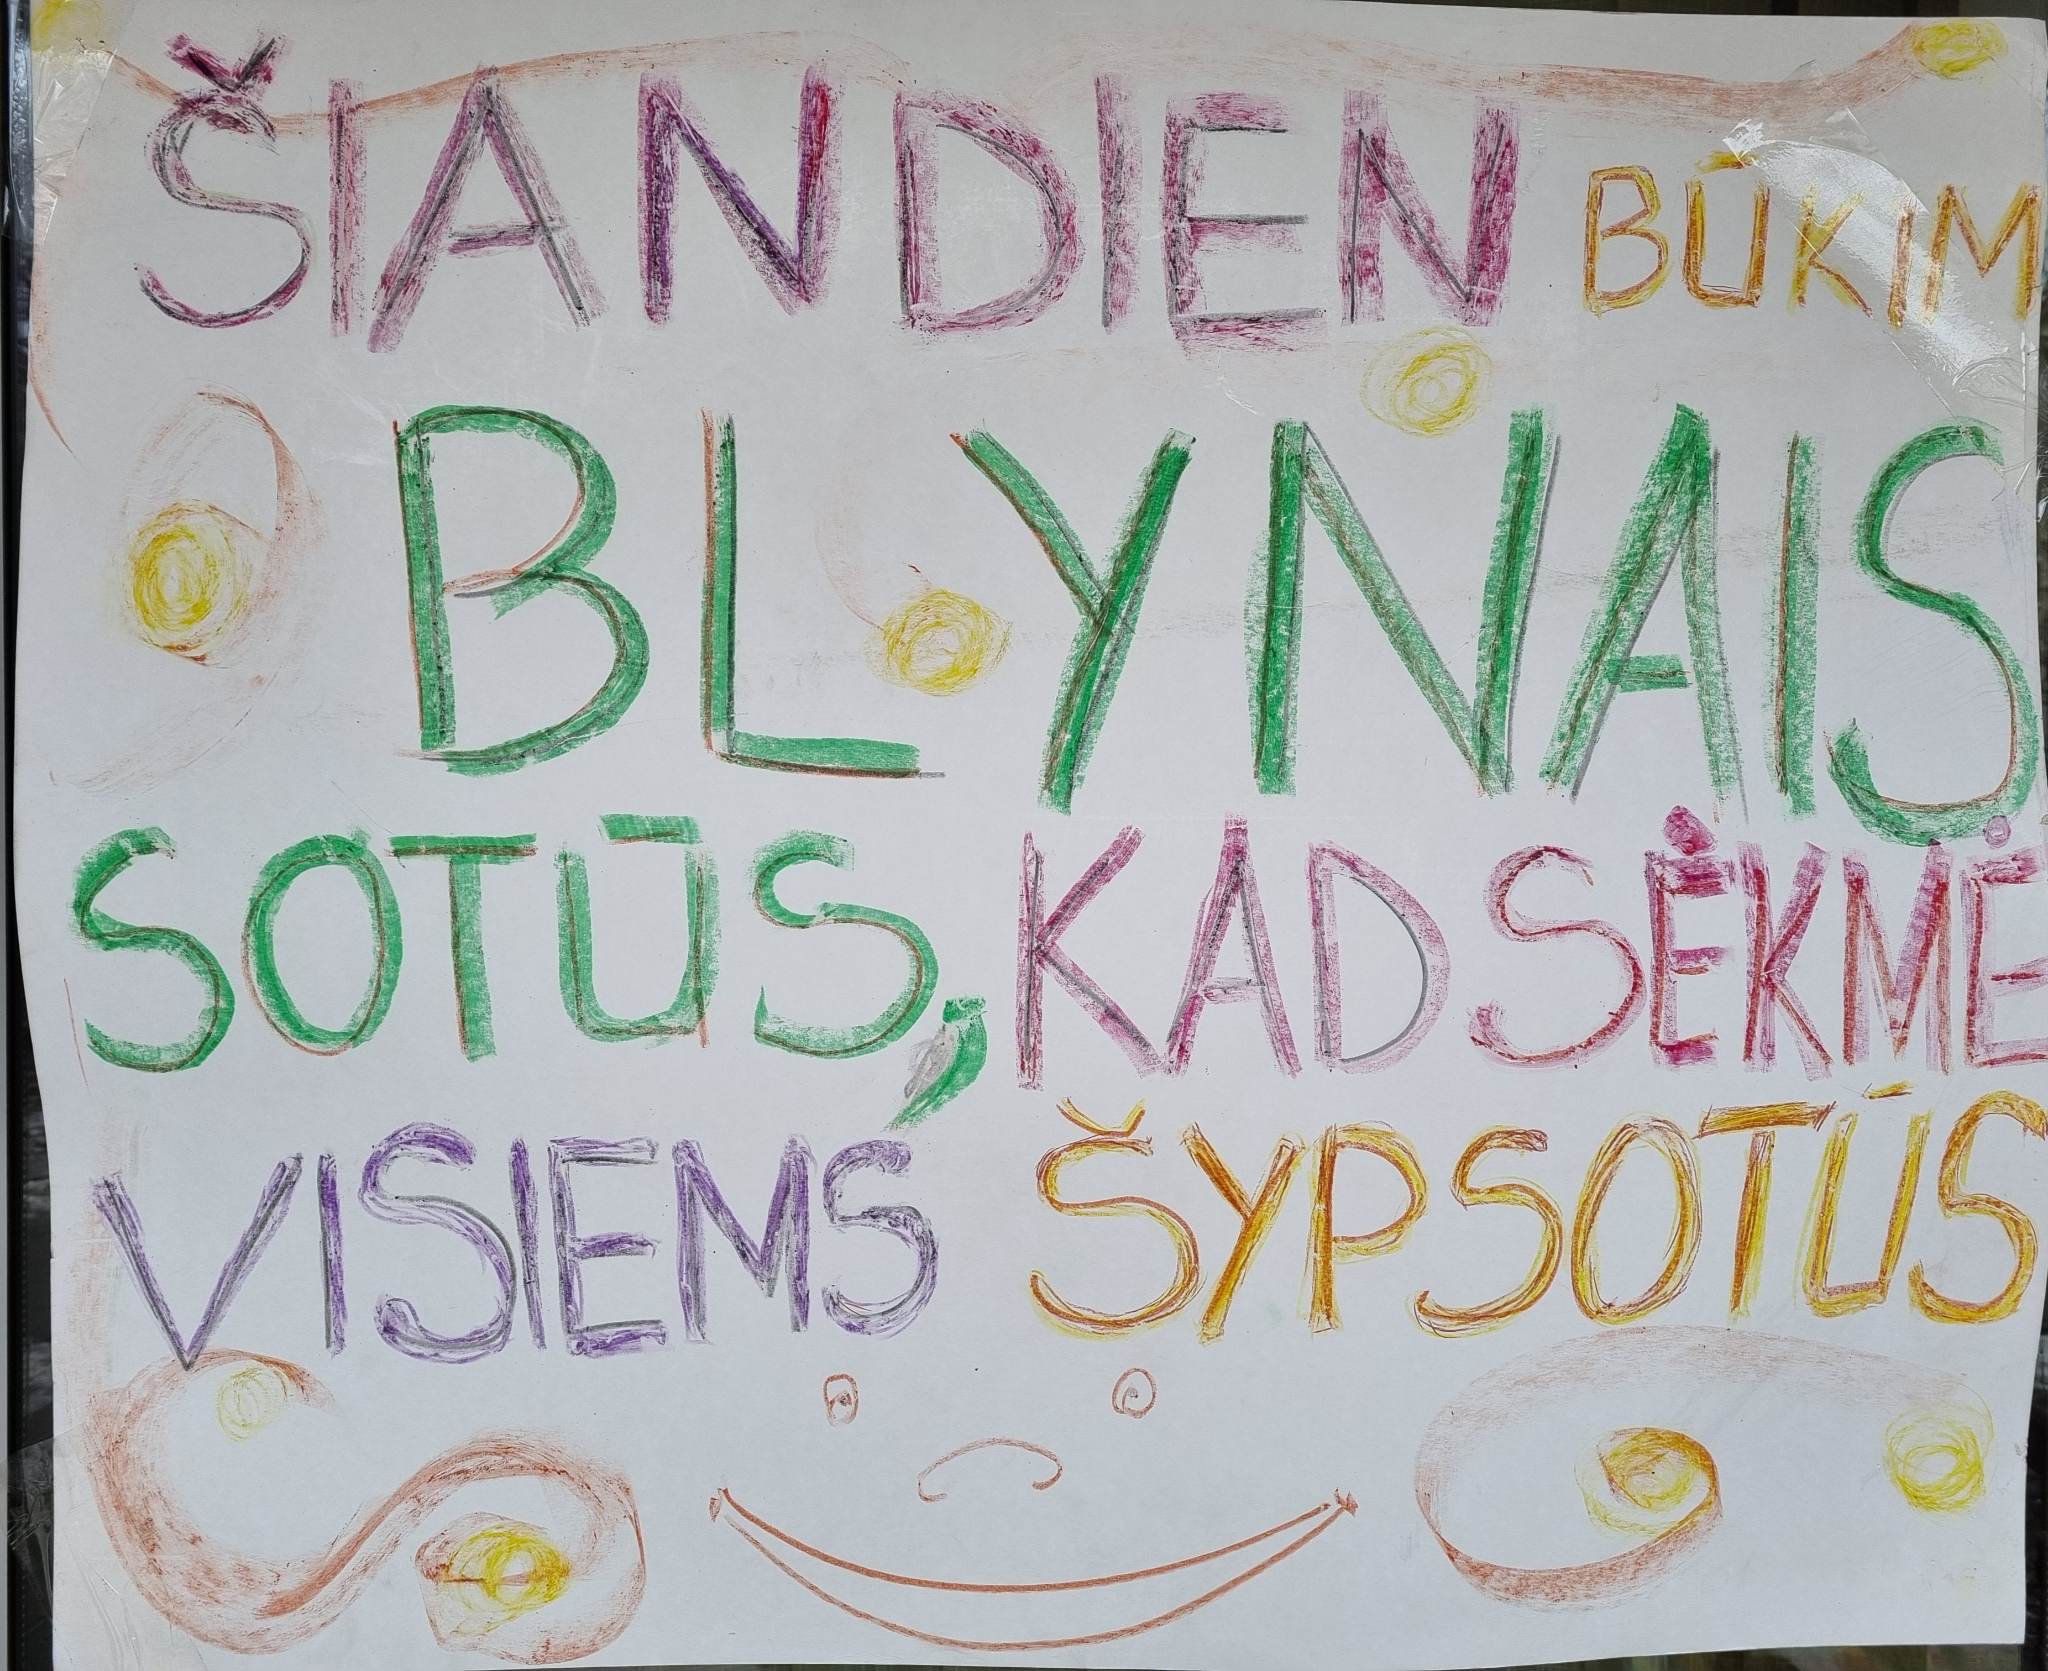 ŠIANDIEN BŪKIM
BLYNAIS
SOTŪS, KAD SĖKMĖ
VISIEMS ŠYPSOTŪS